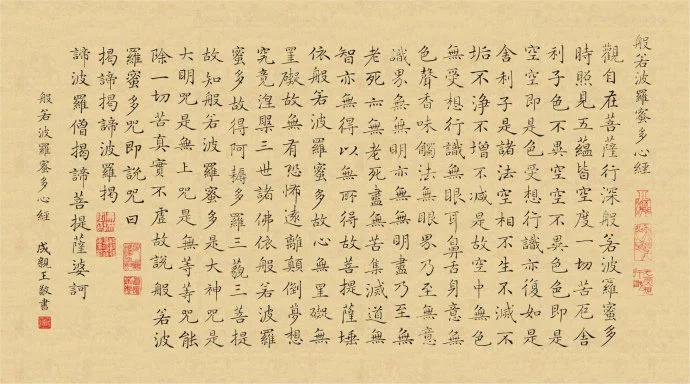 般若波羅蜜多心經
觀自在菩薩行深般若波羅蜜多
時照見五蘊皆空度一切苦厄舍
利子色不異空空不異色色即是
空空即是色受想行識亦復如是
舍利子是諸法空相不生不滅不
垢不淨不增不減是故空中無色
無受想行識無眼耳鼻舌身意無
色聲香味觸法無眼界乃至無意
識界無無明亦無無明盡乃至無
老死亦無老死盡無苦集滅道無
智亦無得以無所得故菩提薩埵
依般若波羅蜜多故心無罣礙無
罣礙故無有恐怖遠離顛倒夢想
究竟涅槃三世諸佛依般若波羅
蜜多故得阿耨多羅三藐三菩提
故知般若波羅蜜多是大神咒是
大明咒是無上咒是無等等咒能
除一切苦真實不虛故說般若波
羅蜜多咒即說咒曰
揭諦揭諦波羅揭
諦波羅僧揭諦菩提薩婆訶
般若波羅蜜多心經 成親王敬書